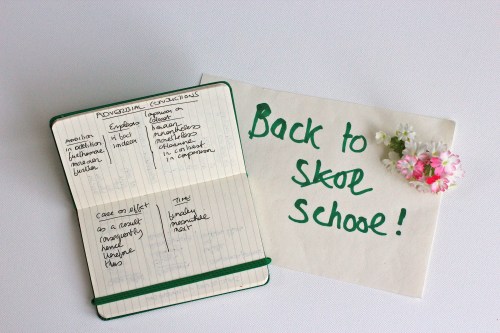 ADVERBIAL CONJUNCTIONS
Addition
in addition
furthermore
moreover
further
Emphasis
in fact
indeed
Comparison or
contrast
however
nevertheless
nonetheless
otherwise
in contrast
in comparison
Cause or effect
as a result
consequently
hence
therefore
thus
TIME
finally
meanwhile
next
Back to
Skol
School!